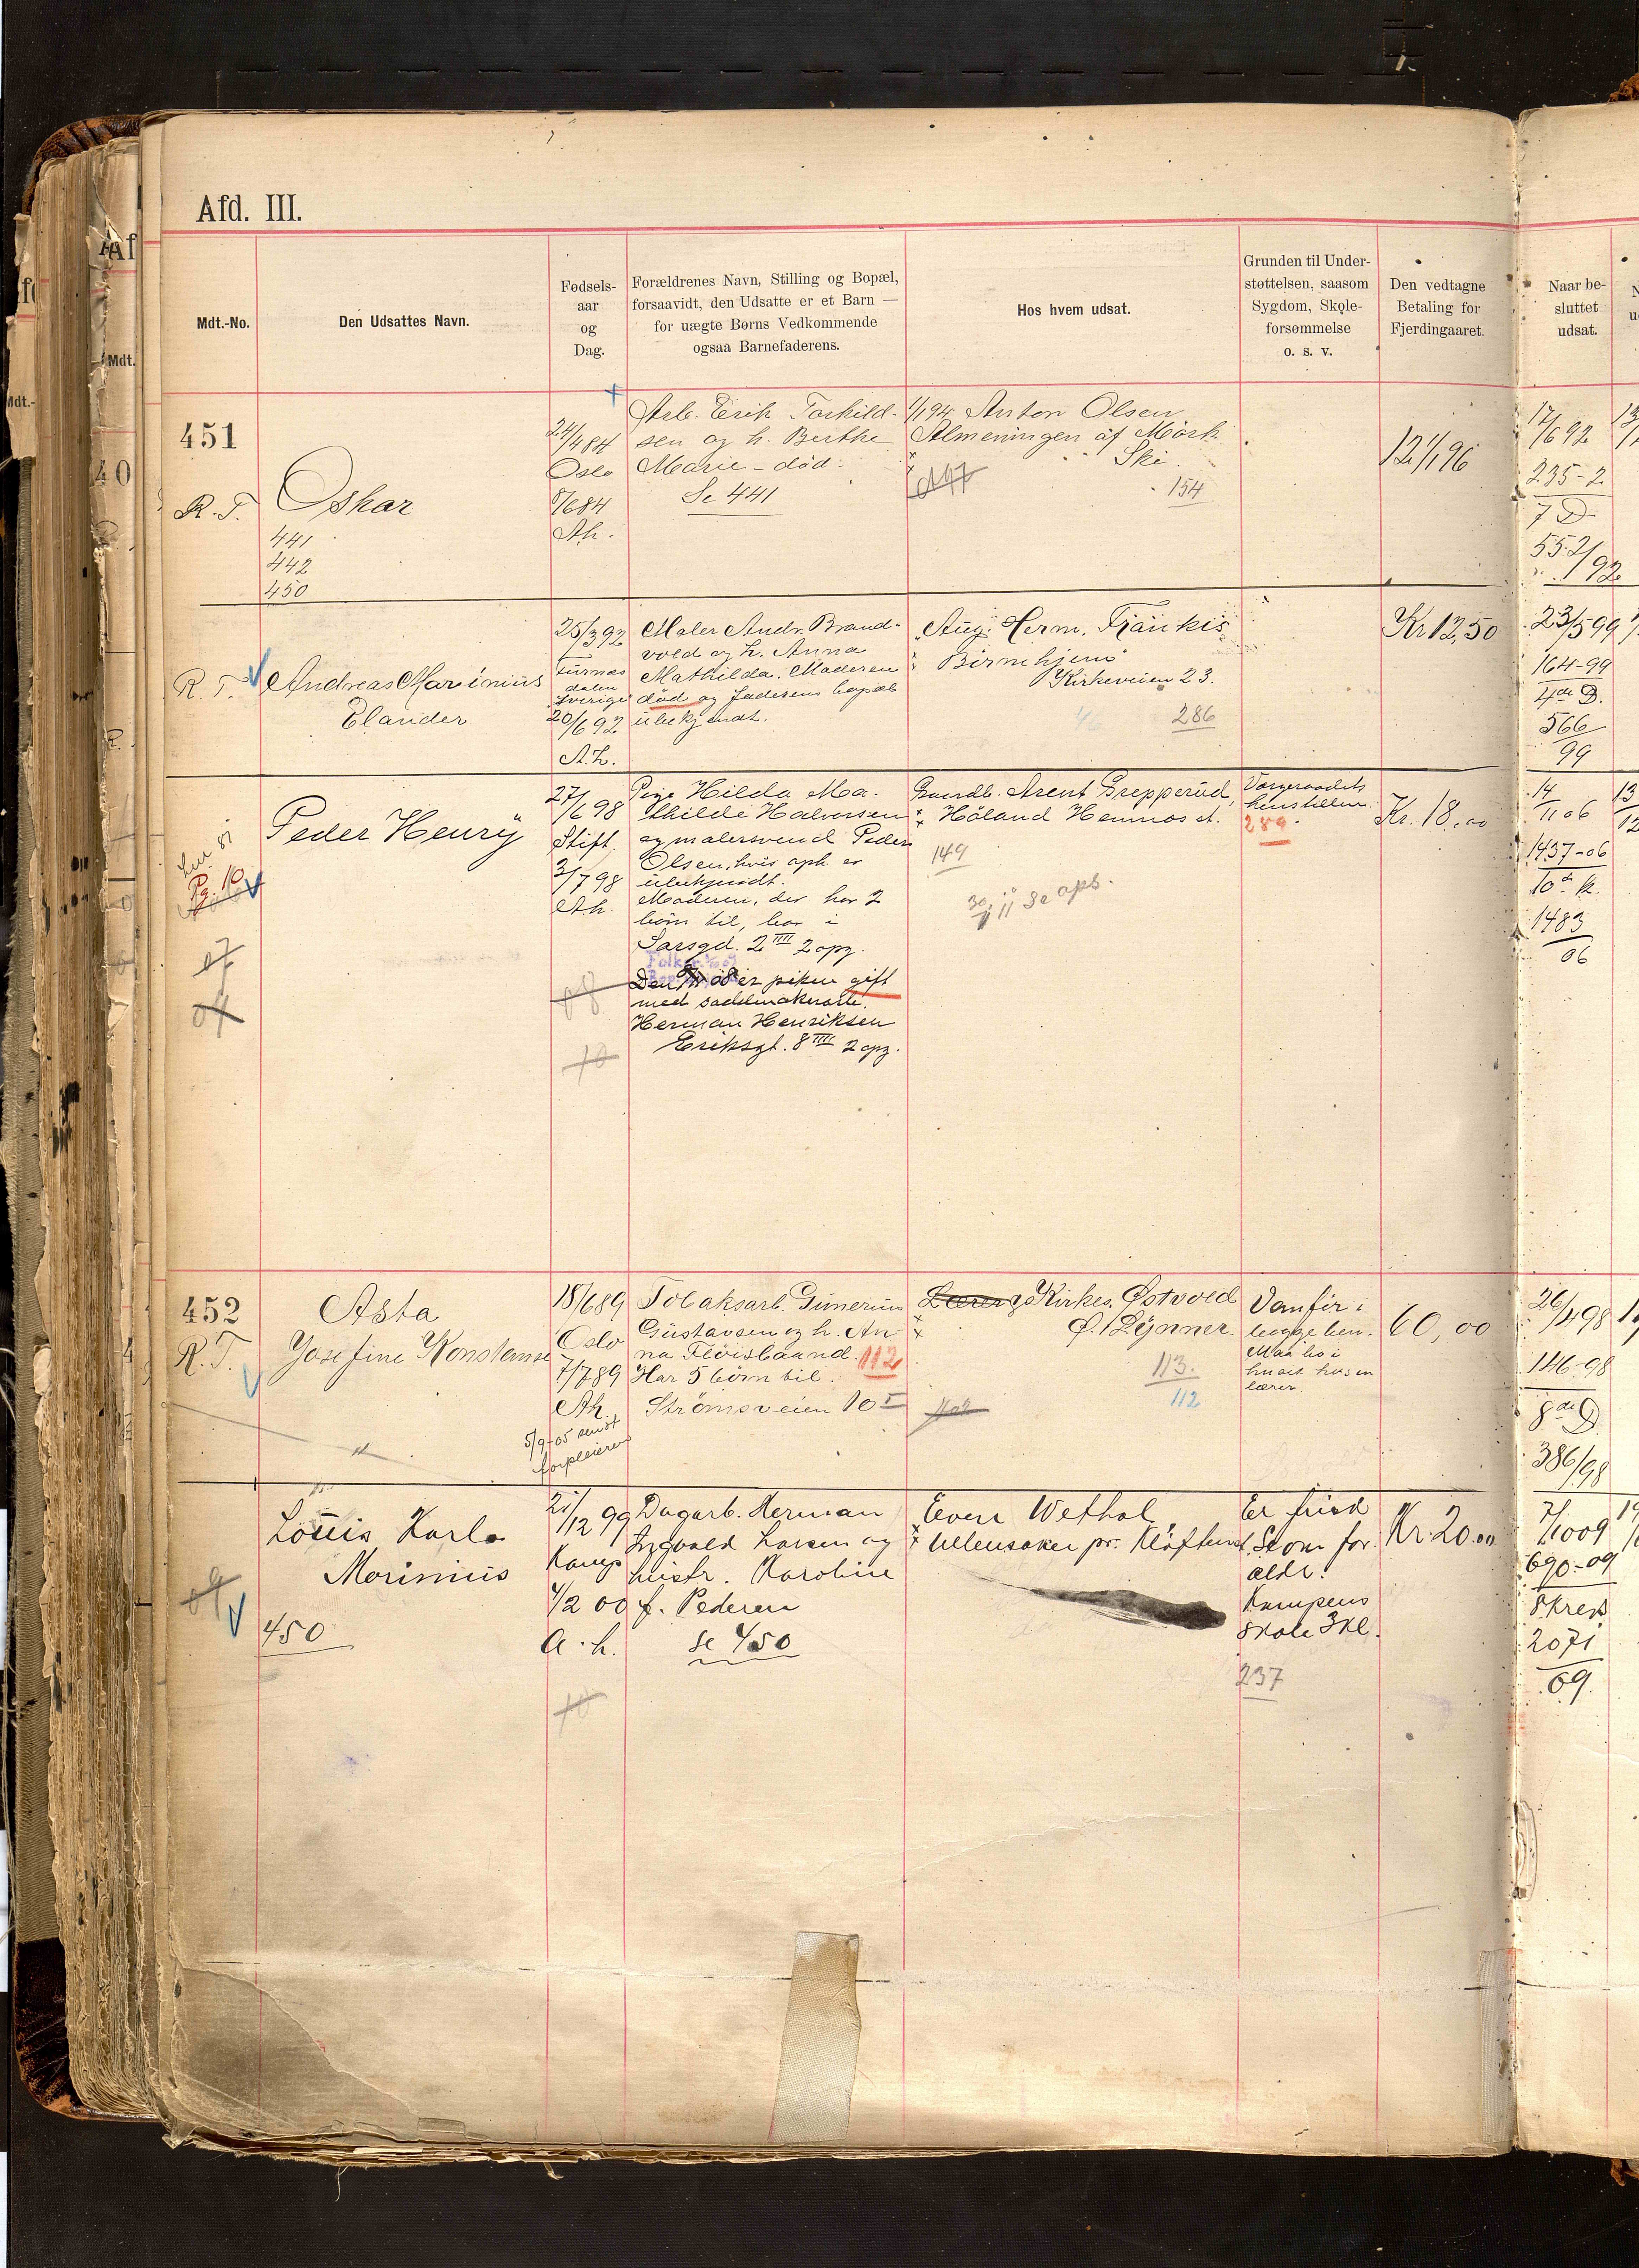 Afd. III.
Mdt.-No.
Den Udsattes Navn.
Fødsels-
aar
og
Dag.
Forældrenes Navn, Stilling og Bopæl,
forsaavidt, den Udsatte er et Barn —
for uægte Børns Vedkommende
ogsaa Barnefaderens.
Hos hvem udsat.
Grunden til Under-
støttelsen, saasom
Sygdom, Skole-
forsømmelse
o. s. v.
Den vedtagne
Betaling for
Fjerdingaaret.
Naar be-
sluttet
udsat.
451
R. T.
Oskar
441
442
450
24/4 84
Oslo
8/6 84
Ah.
Arb. Erik Torkild-
sen og h. Berthe
Marie - død.
Se 441
1/1 94 Anton Olsen
Almeningen af Mörk
Ski.
154
12 1/1 96
17/6 92
235-2
7 D
552/92
R. T.
Andreas Marinius
Elander
25/3 92
Furnas
dalen
Sverige
20/6 92
A.h.
Maler Andr. Brand-
vold og h. Anna
Mathilda. Moderen
död og faderens bopæl
ubekjendt.
Aug. Herm. Frankis
Börnehjem
Kirkeveien 23.
286
Kr 12,50
23/5 99
164-99
4de D.
566
99
Pg. 10
Peder Henry
27/6 98
Stift.
3/7 98
Ah.
Pige Hilda Ma-
thilde Halvorsen
og malersvend Peder
Olsen, hvis oph. er
ubekjendt.
Moderen, der har 2
börn til, bor i
Sarsgd. 2 IIII 2 opg.
er piken gift
med saddelmakerarb.
Herman Henriksen
Eriksgt. 8 III 2 opg.
Gaardb. Arent Grepperud
Höland Hemnes st.
149
Vergeraadets
henstillen.
289
Kr. 18,00
14/11 06
1437-06
10de k.
1483
06
452
R. T.
Asta
Josefine Konstanse
18/6 89
Oslo
7/7 89
Ah.
5/9-05 sendt
forpleieren
Tobaksarb. Gunerius
Gustavsen og h. An-
na Flöisbaand. 112
Har 5 börn til.
Strömsveien 10 I
Kirkes. Østvold
Ø. Rÿnner.
113.
112
Vanför i
begge ben.
Maa bo i
huset hos en
lærer.
60,00
26/4 98
146-98
8de D
386/98
Louis Karl
Marinius
450
21/12 99
Kamp
4/2 00
A. h.
Dagarb. Herman
Ingvald Larsen og
hustr. Karoline
f. Pedersen
se 450
Even Wethal
Ullensaker pr. Klöften st.
Er frisk
Stor for
alder.
Kampens
skole 3 kl.
237
Kr. 20.00
7/10 09
690-09
8 kreds
2071
09.